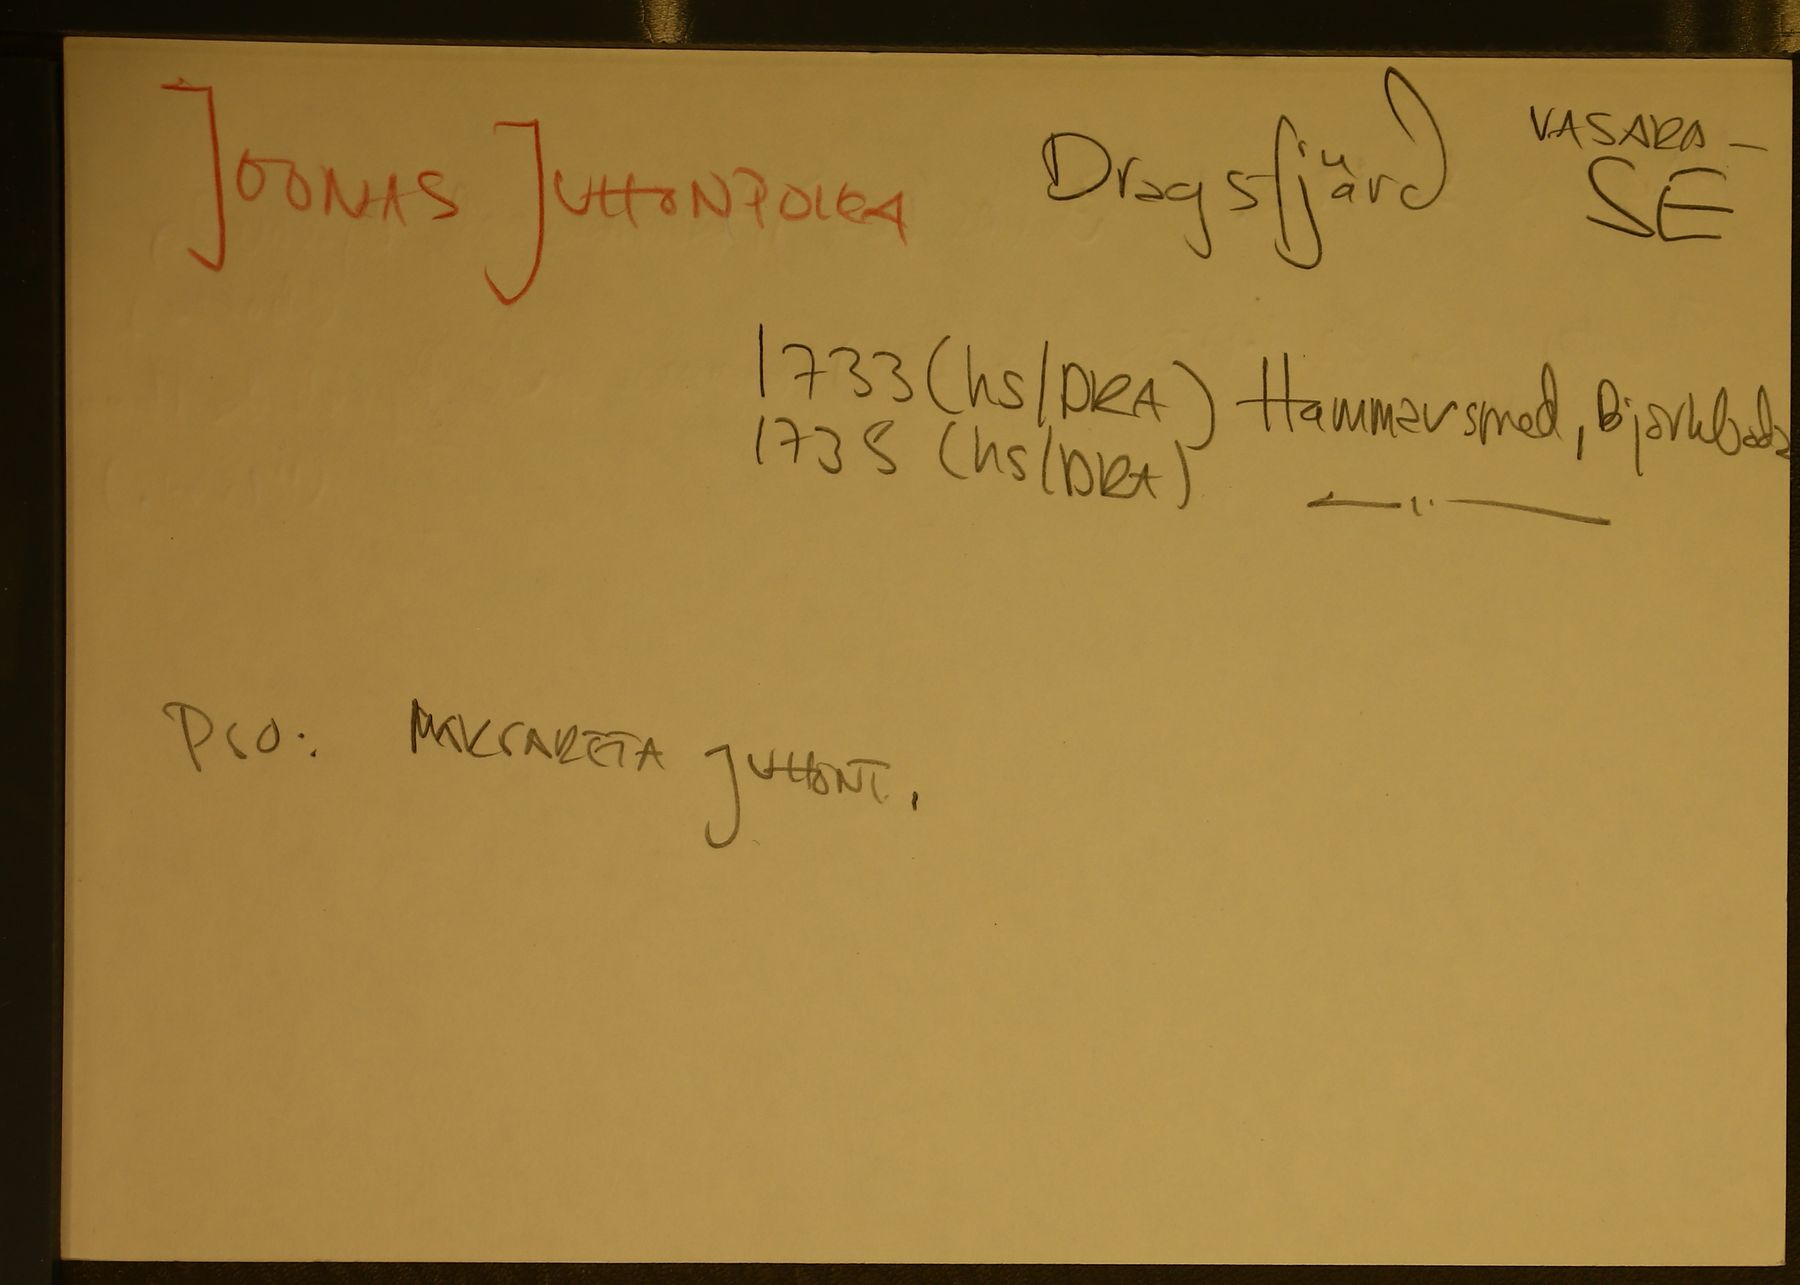 JOONAS JUHONPOIKA Dragsfjärd VASARA-
SE
1733 (hs/DRA) Hammersmed, Björkboda
1735 (hs/DRA) —"—
PSO: MARGARETA JUHONT.